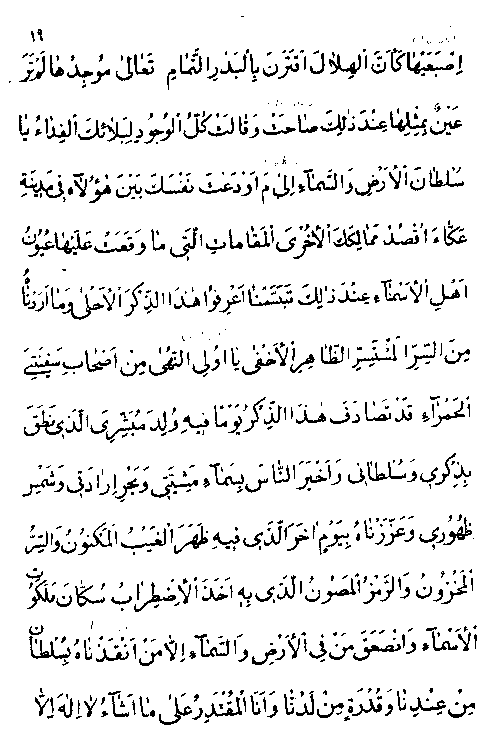 ١٩
اِصْبَعَيْهَا كَاَنَّ الْهِلَالَ اقْتَرَنَ بِالْبَدْرِ التَّمَامِ تَعَالٰى مُوجِدُهَا لَمْ تَرَ
عَيْنٌ بِمِثْلِهَا عِنْدَ ذٰلِكَ صَاحَتْ وَقَالَتْ كُلُّ الْوُجُودِ لِبَلَائِكَ الْفِدَاءُ يَا
سُلْطَانَ الْاَرْضِ وَالسَّمَآءِ اِلٰى مَ اَوْدَعْتَ نَفْسَكَ بَيْنَ هٰؤُلَآءِ فِي مَدِينَةِ
عَكَّاءَ اقْصُدْ مَمَالِكَكَ الْاُخْرٰى الْمَقَامَاتِ الَّتِي مَا وَقَعَتْ عَلَيْهَا عُيُونُ
اَهْلِ الْاَسْمَآءِ عِنْدَ ذٰلِكَ تَبَسَّمْنَا اعْرِفُوا هٰذَا الذِّكْرَ الْاَحْلٰى وَمَا اَرَدْنَاهُ
مِنَ السِّرِّ الْمُسْتَسِرِّ الظَّاهِرِ الْاَخْفٰى يَا اُولِي النُّهٰى مِنْ اَصْحَابِ سَفِينَتِيَ
الْحَمْرَآءِ قَدْ تَصَادَفَ هٰذَا الذِّكْرُ يَوْمًا فِيهِ وُلِدَ مُبَشِّرِي الَّذِي نَطَقَ
بِذِكْرِي وَسُلْطَانِي وَاَخْبَرَ النَّاسَ بِسَمَآءِ مَشِيَّتِي وَبَحْرِ اِرَادَتِي وَشَمْسِ
ظُهُورِي وَعَزَّزْنَاهُ بِيَوْمٍ اٰخَرَ الَّذِي فِيهِ ظَهَرَ الْغَيْبُ الْمَكْنُونُ وَالسِّرُّ
الْمَخْزُونُ وَالرَّمْزُ الْمَصُونُ الَّذِي بِهِ اَخَذَ الْاِضْطِرَابُ سُكَّانَ مَلَكُوتِ
الْاَسْمَآءِ وَانْصَعَقَ مَنْ فِي الْاَرْضِ وَالسَّمَآءِ اِلَّا مَنْ اَنْقَذْنَاهُ بِسُلْطَانٍ
مِنْ عِنْدِنَا وَقُدْرَةٍ مِنْ لَدُنَّا وَاَنَا الْمُقْتَدِرُ عَلٰى مَا اَشَآءُ لَا اِلٰهَ اِلَّا